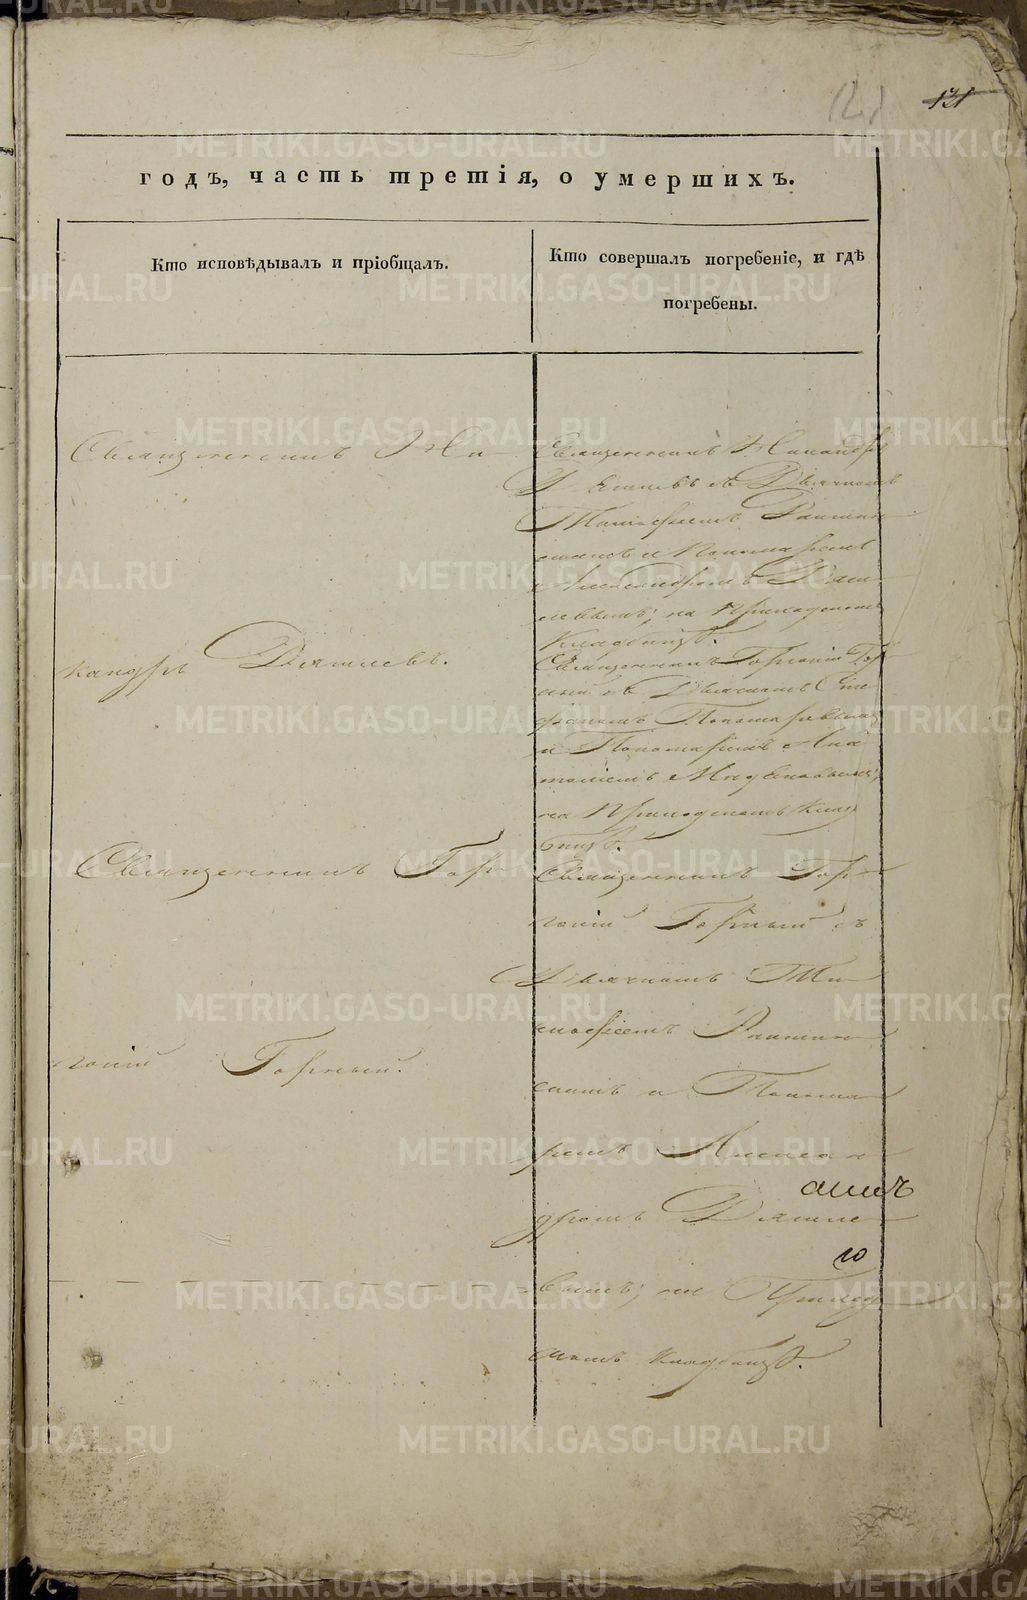 121
131
годъ, часть третія, о умершихъ.
Кто исповѣдывалъ и пріобщалъ.
Кто совершалъ погребеніе, и гдѣ
погребены.
Священникъ Ни
кандръ Дягилевъ.
Священникъ Гор
гоній Горный.
Священникъ Никандръ
Дягилевъ съ Дьячкомъ
Тимофеемъ
и Пономаремъ
Александромъ Дяги
левымъ; на Приходскомъ
Кладбищѣ.
Священникъ Горгоній Гор
ный съ Дьячкомъ Сте
фаномъ Пономаревымъ
и Пономаремъ Ана
толіемъ
на Приходскомъ Клад
бищѣ.
Священникъ Гор
гоній Горный съ
Дьячкомъ Ти
мофеемъ
и Понома
ремъ Алексан
дромъ Дягиле
вымъ; на Приход
скомъ кладбищѣ.
METRIKI.GASO-URAL.RU